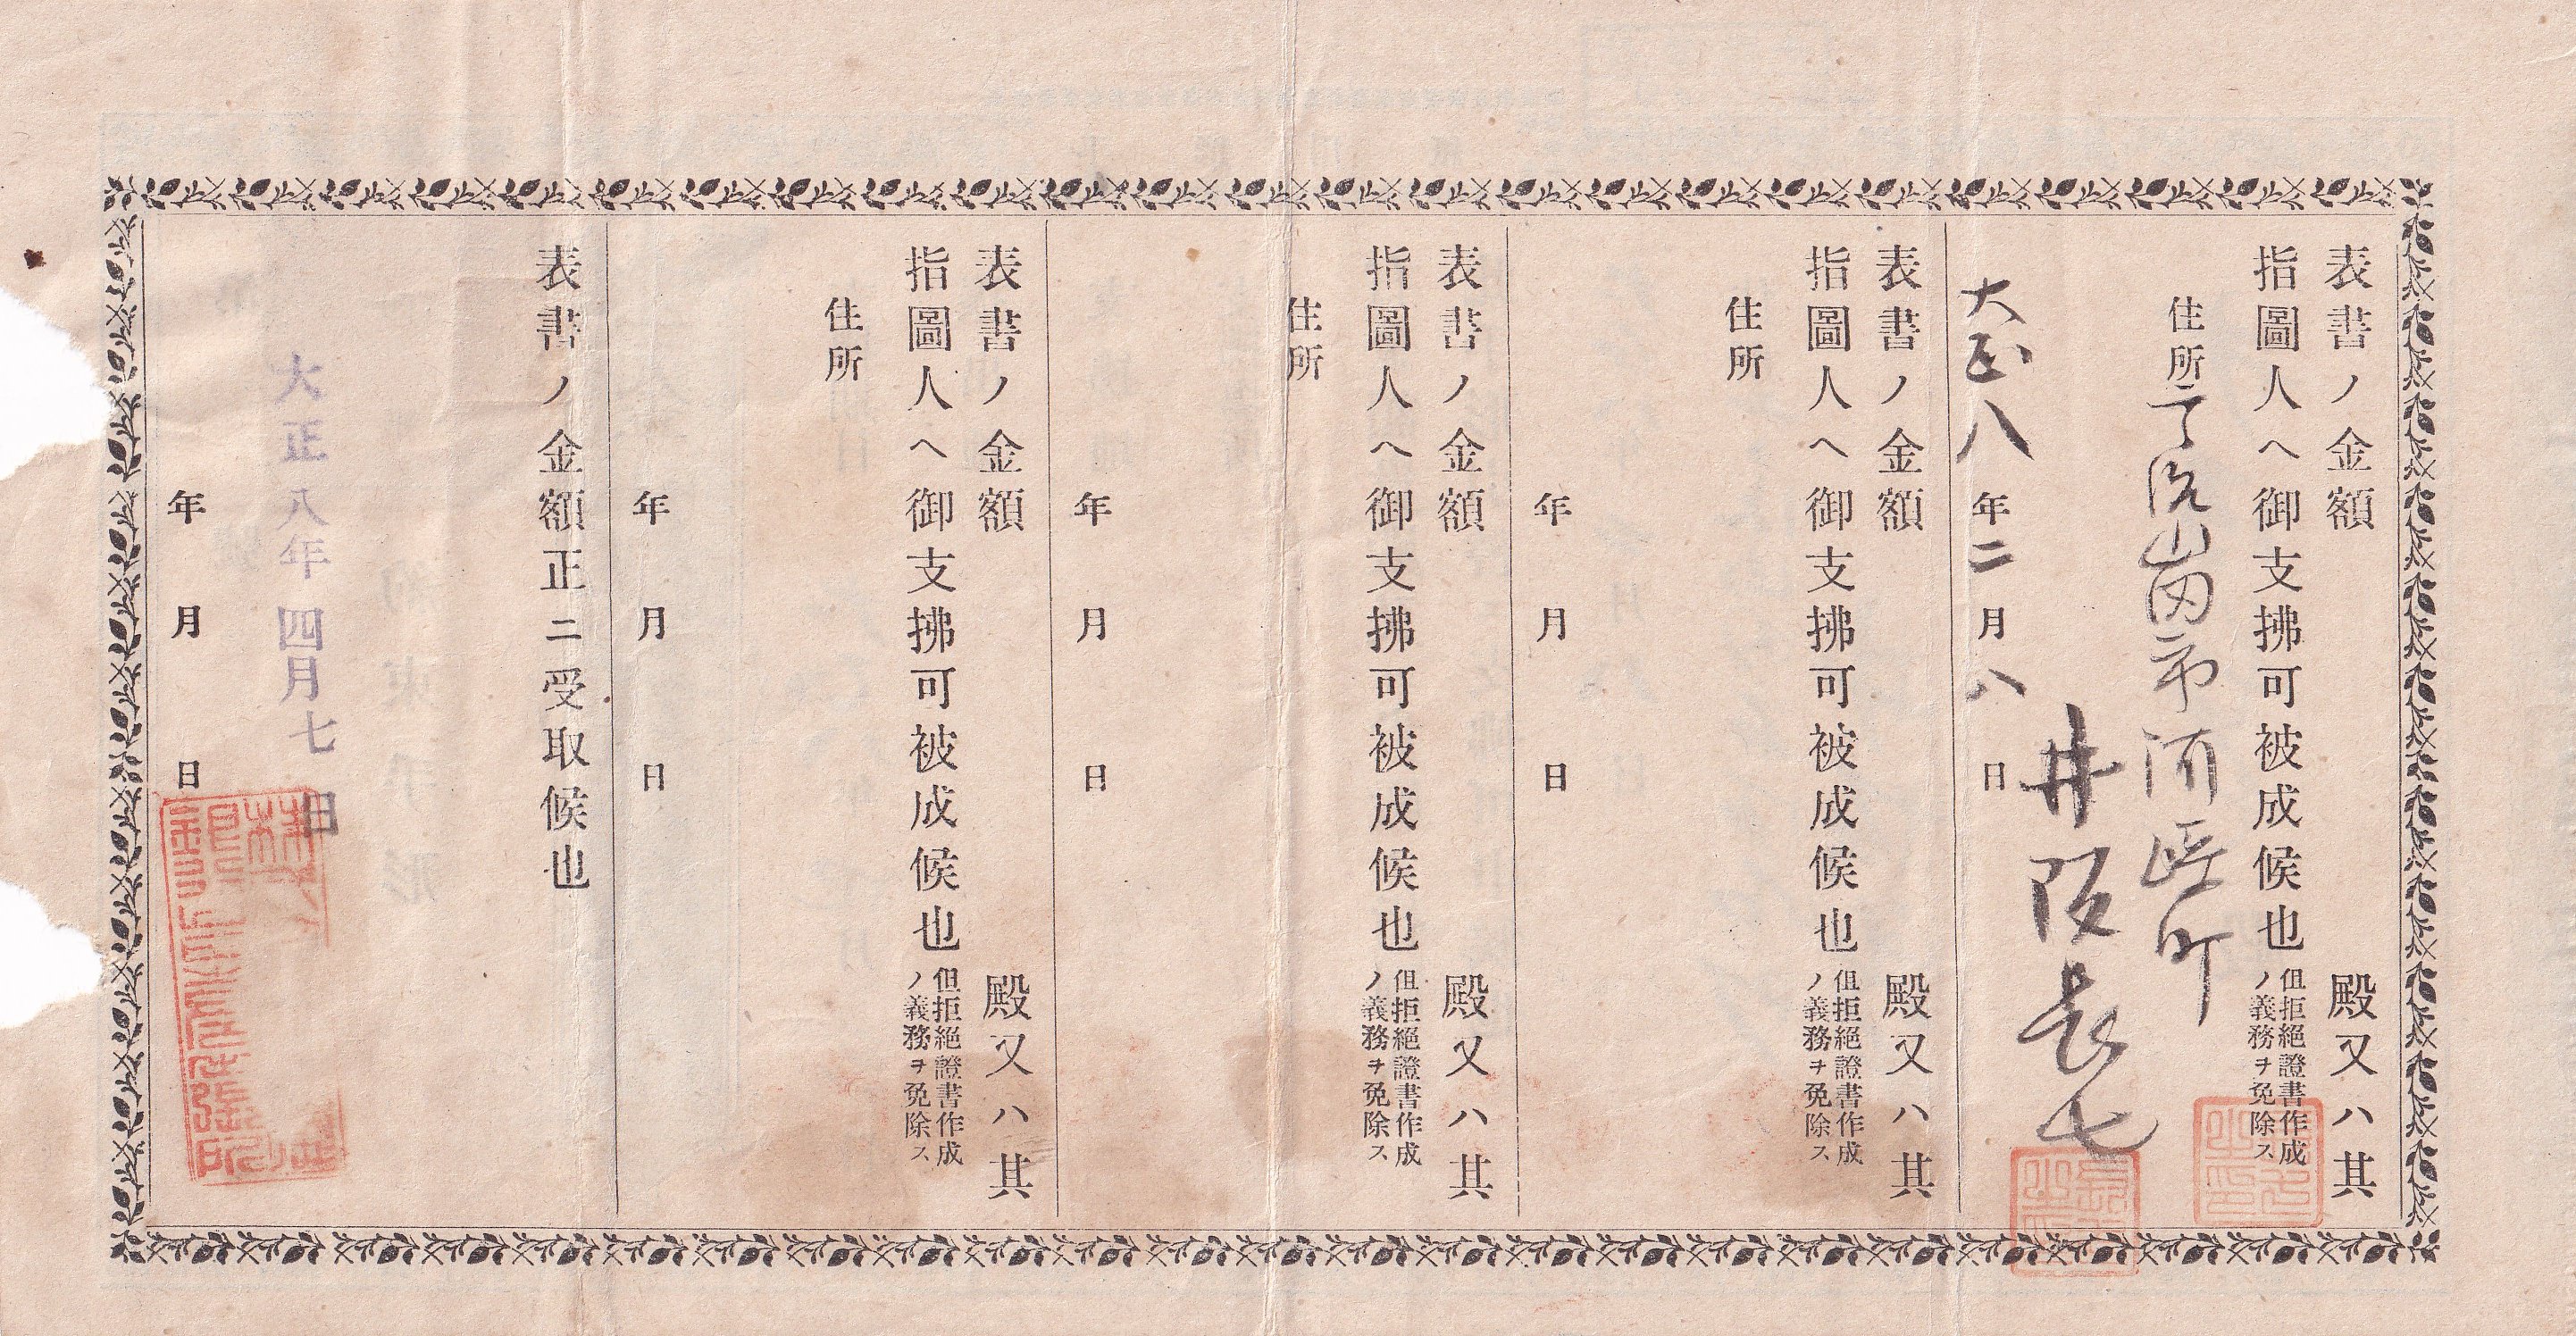 表書ノ金額 殿又ハ其
指圖人ヘ御支拂可被成候也 但拒絕證書作成
ノ義務ヲ免除ス
住所 市 町
井阪長七
大正八年二月八日
表書ノ金額 殿又ハ其
指圖人ヘ御支拂可被成候也 但拒絕證書作成
ノ義務ヲ免除ス
住所
年 月 日
表書ノ金額 殿又ハ其
指圖人ヘ御支拂可被成候也 但拒絕證書作成
ノ義務ヲ免除ス
住所
年 月 日
表書ノ金額 殿又ハ其
指圖人ヘ御支拂可被成候也 但拒絕證書作成
ノ義務ヲ免除ス
住所
年 月 日
表書ノ金額正ニ受取候也
大正八年四月七日
年 月 日